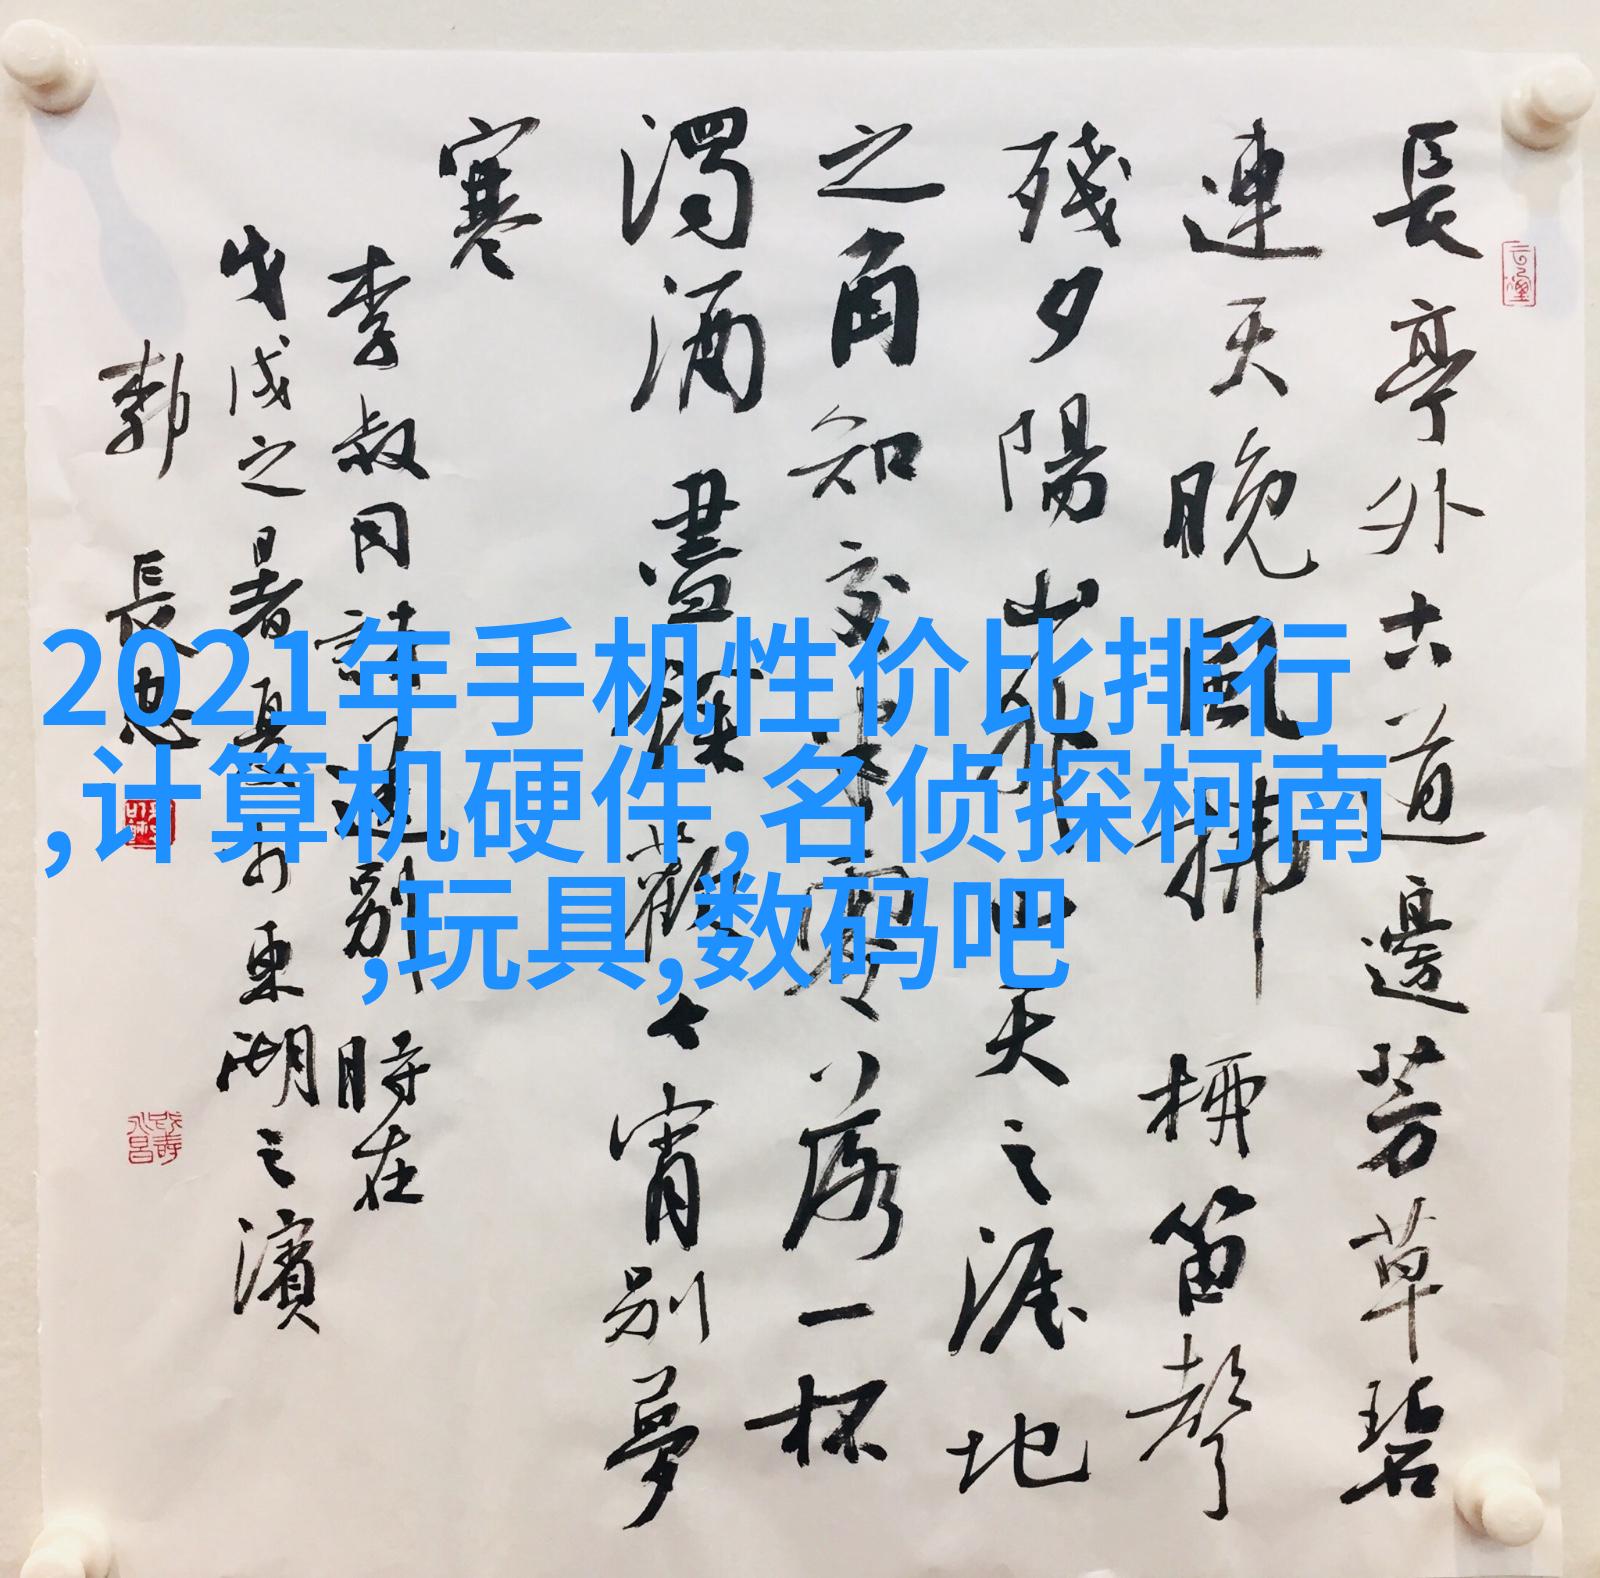 長亭外古道邊芳草碧
連天晚風拂柳笛聲
殘夕陽山外山天之涯地
之角知交半零落一杯
濁酒盡餘歡今宵別夢
寒
李叔同詩送別 時在
戊戌之暑夏於東湖之濱
郭長忠
2021年手机性价比排行
,计算机硬件,名侦探柯南
,玩具,数码吧